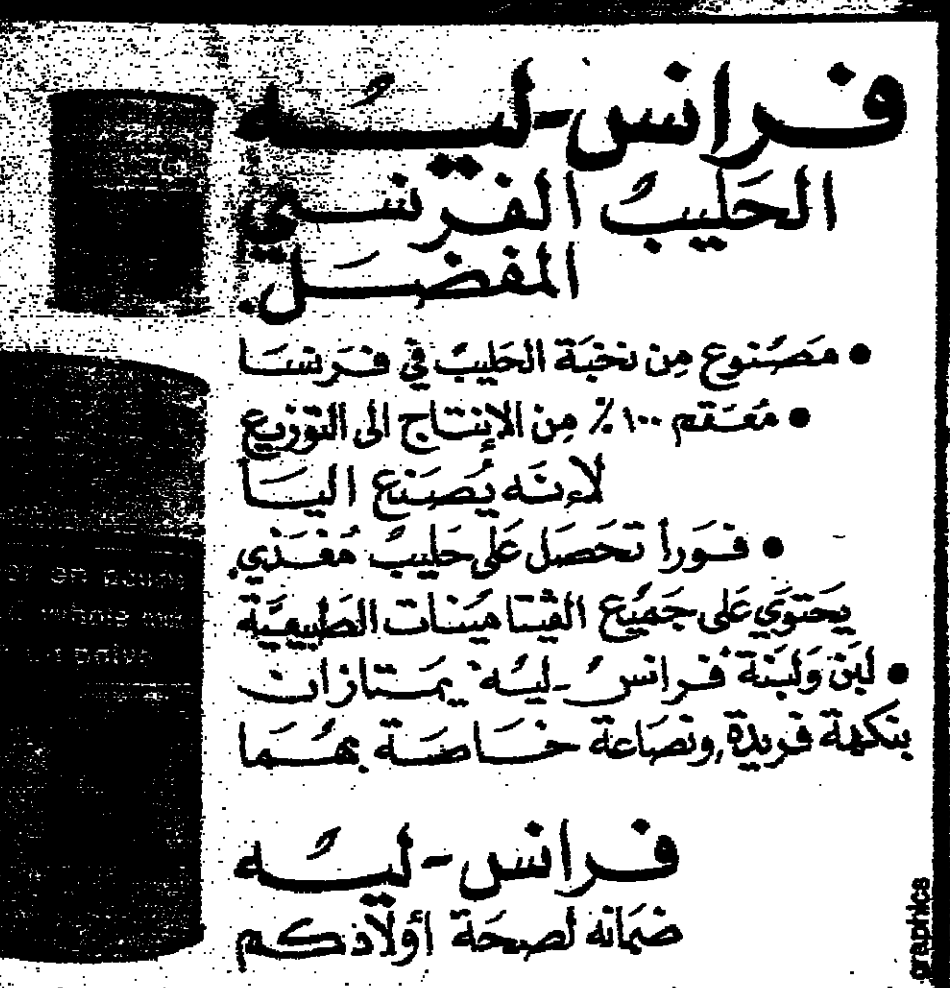 فرانس-ليه
الحليب الفرنسي
المفضل.
• مصنوع من نخبة الحليب في فرنسا
• معقم ١٠٠٪ من الإنتاج الى التوزيع
لأنه يصنع اليا
• فوراً تحصل على حليب مغذي،
يحتوي على جميع الفيتامينات الطبيعية
• لبن ولبنة فرانس-ليه يمتازان
بنكهة فريدة، ونصاعة خاصة بهما
فرانس-ليه
ضمانه لصحة أولادكم
graphics